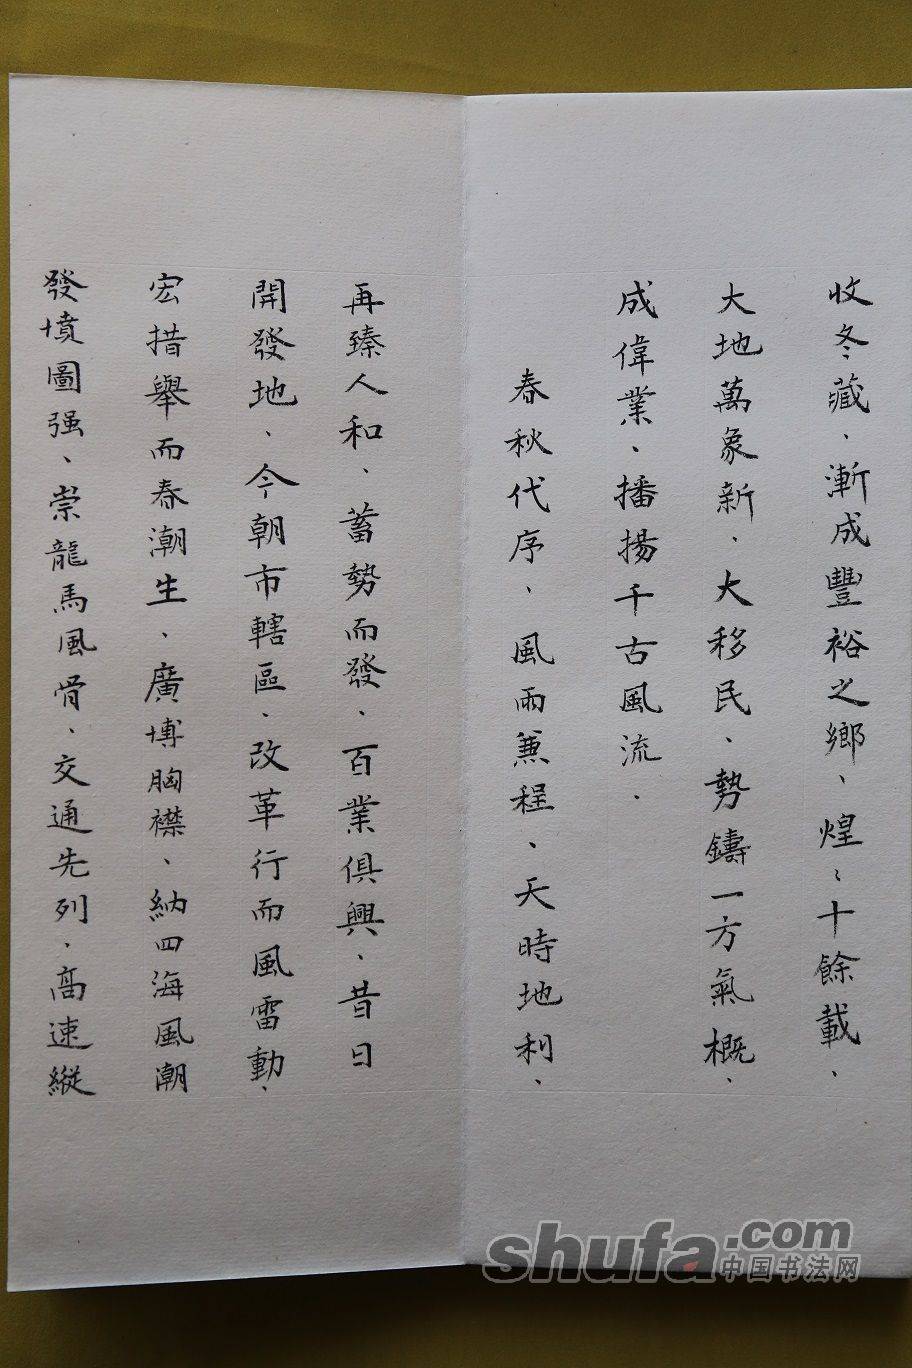 收冬藏、漸成豐裕之鄉、煌〻十餘載、
大地萬象新、大移民、勢鑄一方氣概、
成偉業、播揚千古風流、
春秋代序、風雨兼程、天時地利、
再臻人和、蓄勢而發、百業俱興、昔日
開發地、今朝市轄區、改革行而風雷動、
宏措舉而春潮生、廣博胸襟、納四海風潮
發墳圖强、崇龍馬風骨、交通先列、高速縱
shufa.com
中国书法网